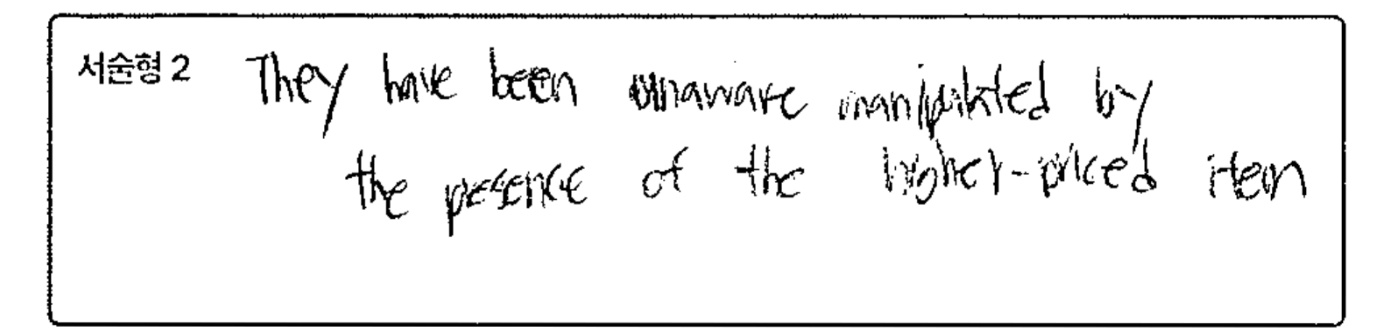 서술형 2 They have been unaware manipulated by
the presence of the higher-priced item